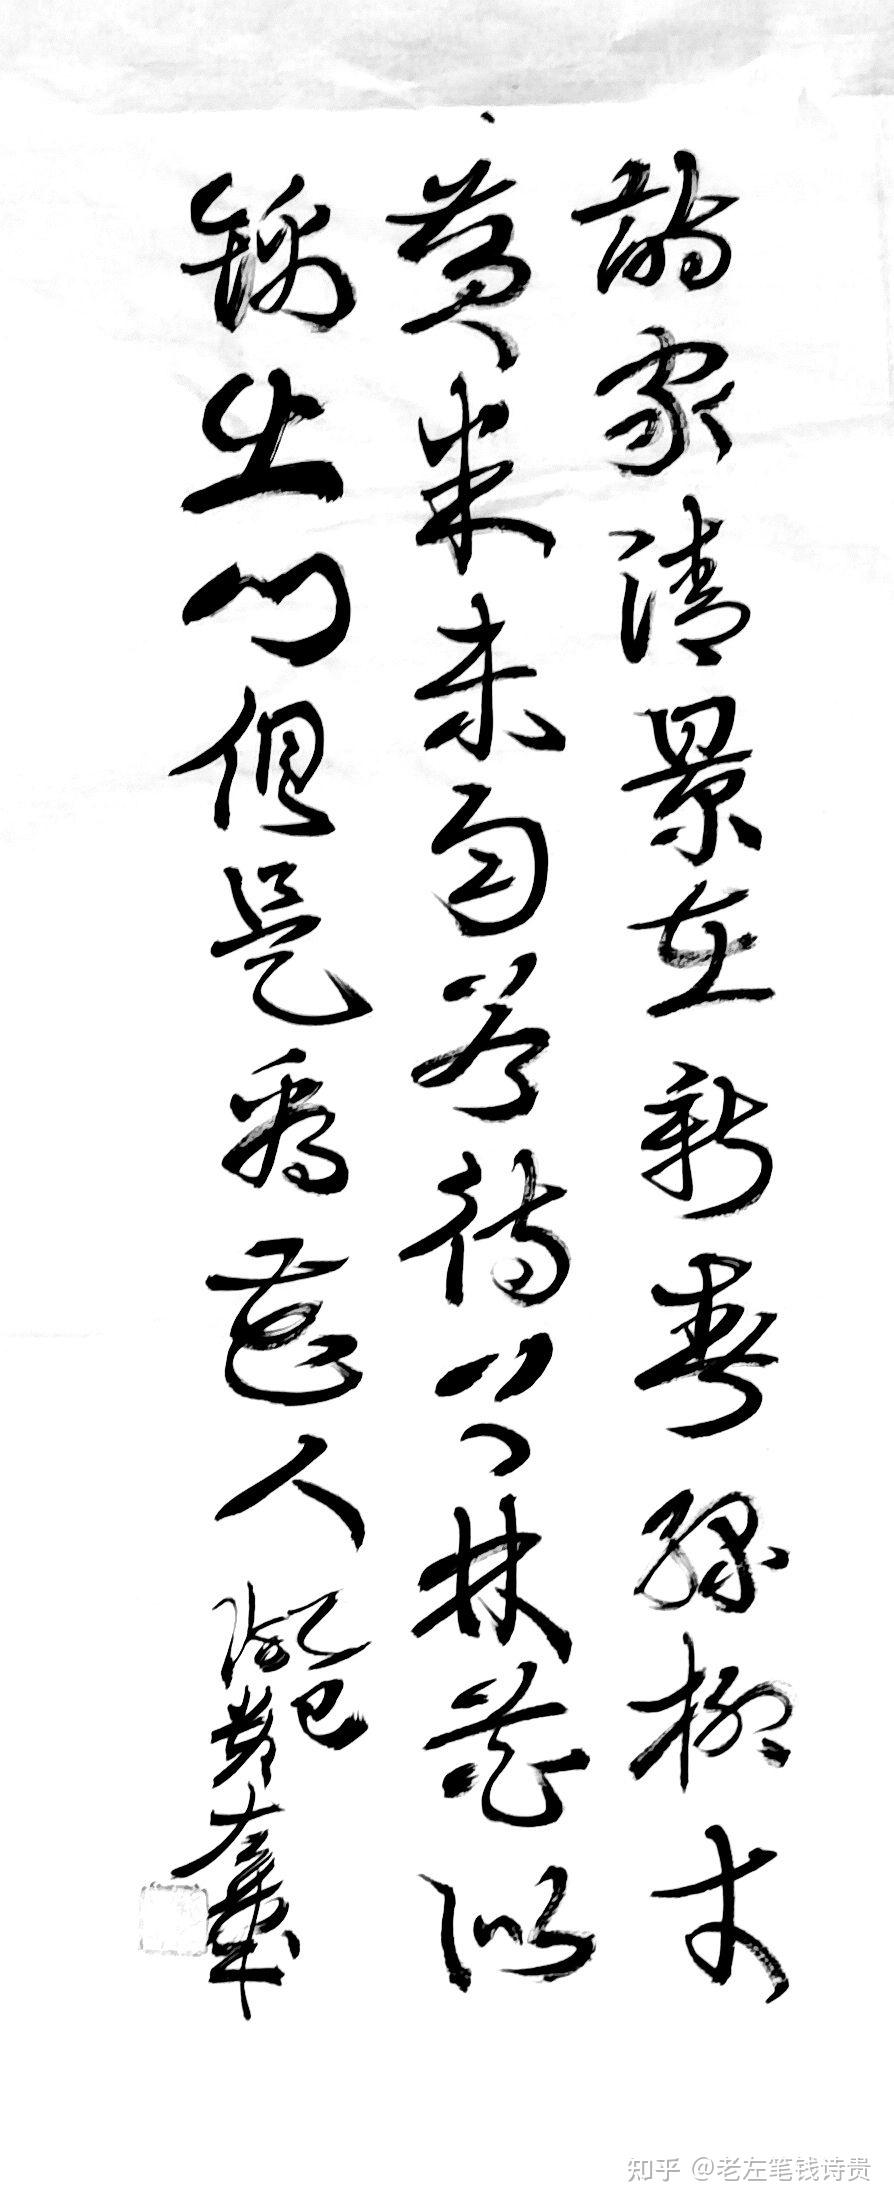 诗家清景在新春绿柳才
黄半未匀若待上林花似
锦出门俱是看花人
知乎 @老左笔钱诗贵